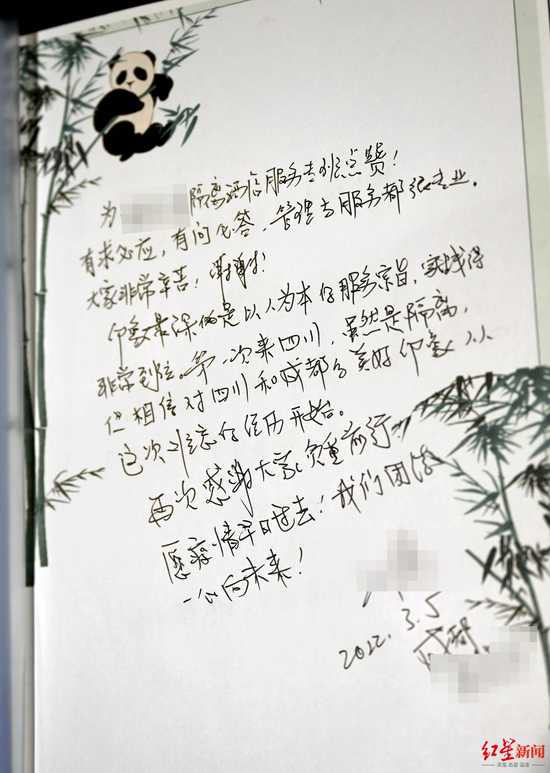 为 隔离酒店服务专班点赞!
有求必应,有问必答,管理与服务都很专业。
大家非常辛苦!谢谢!
印象最深的是以人为本的服务宗旨,实践得
非常到位。第一次来四川,虽然是隔离,
但相信对四川和成都的美好印象从
这次难忘的经历开始。
再次感谢大家负重前行
愿疫情早日过去!我们团结
一心向未来!
2022.3.5
成都
红星新闻
深度 态度 温度